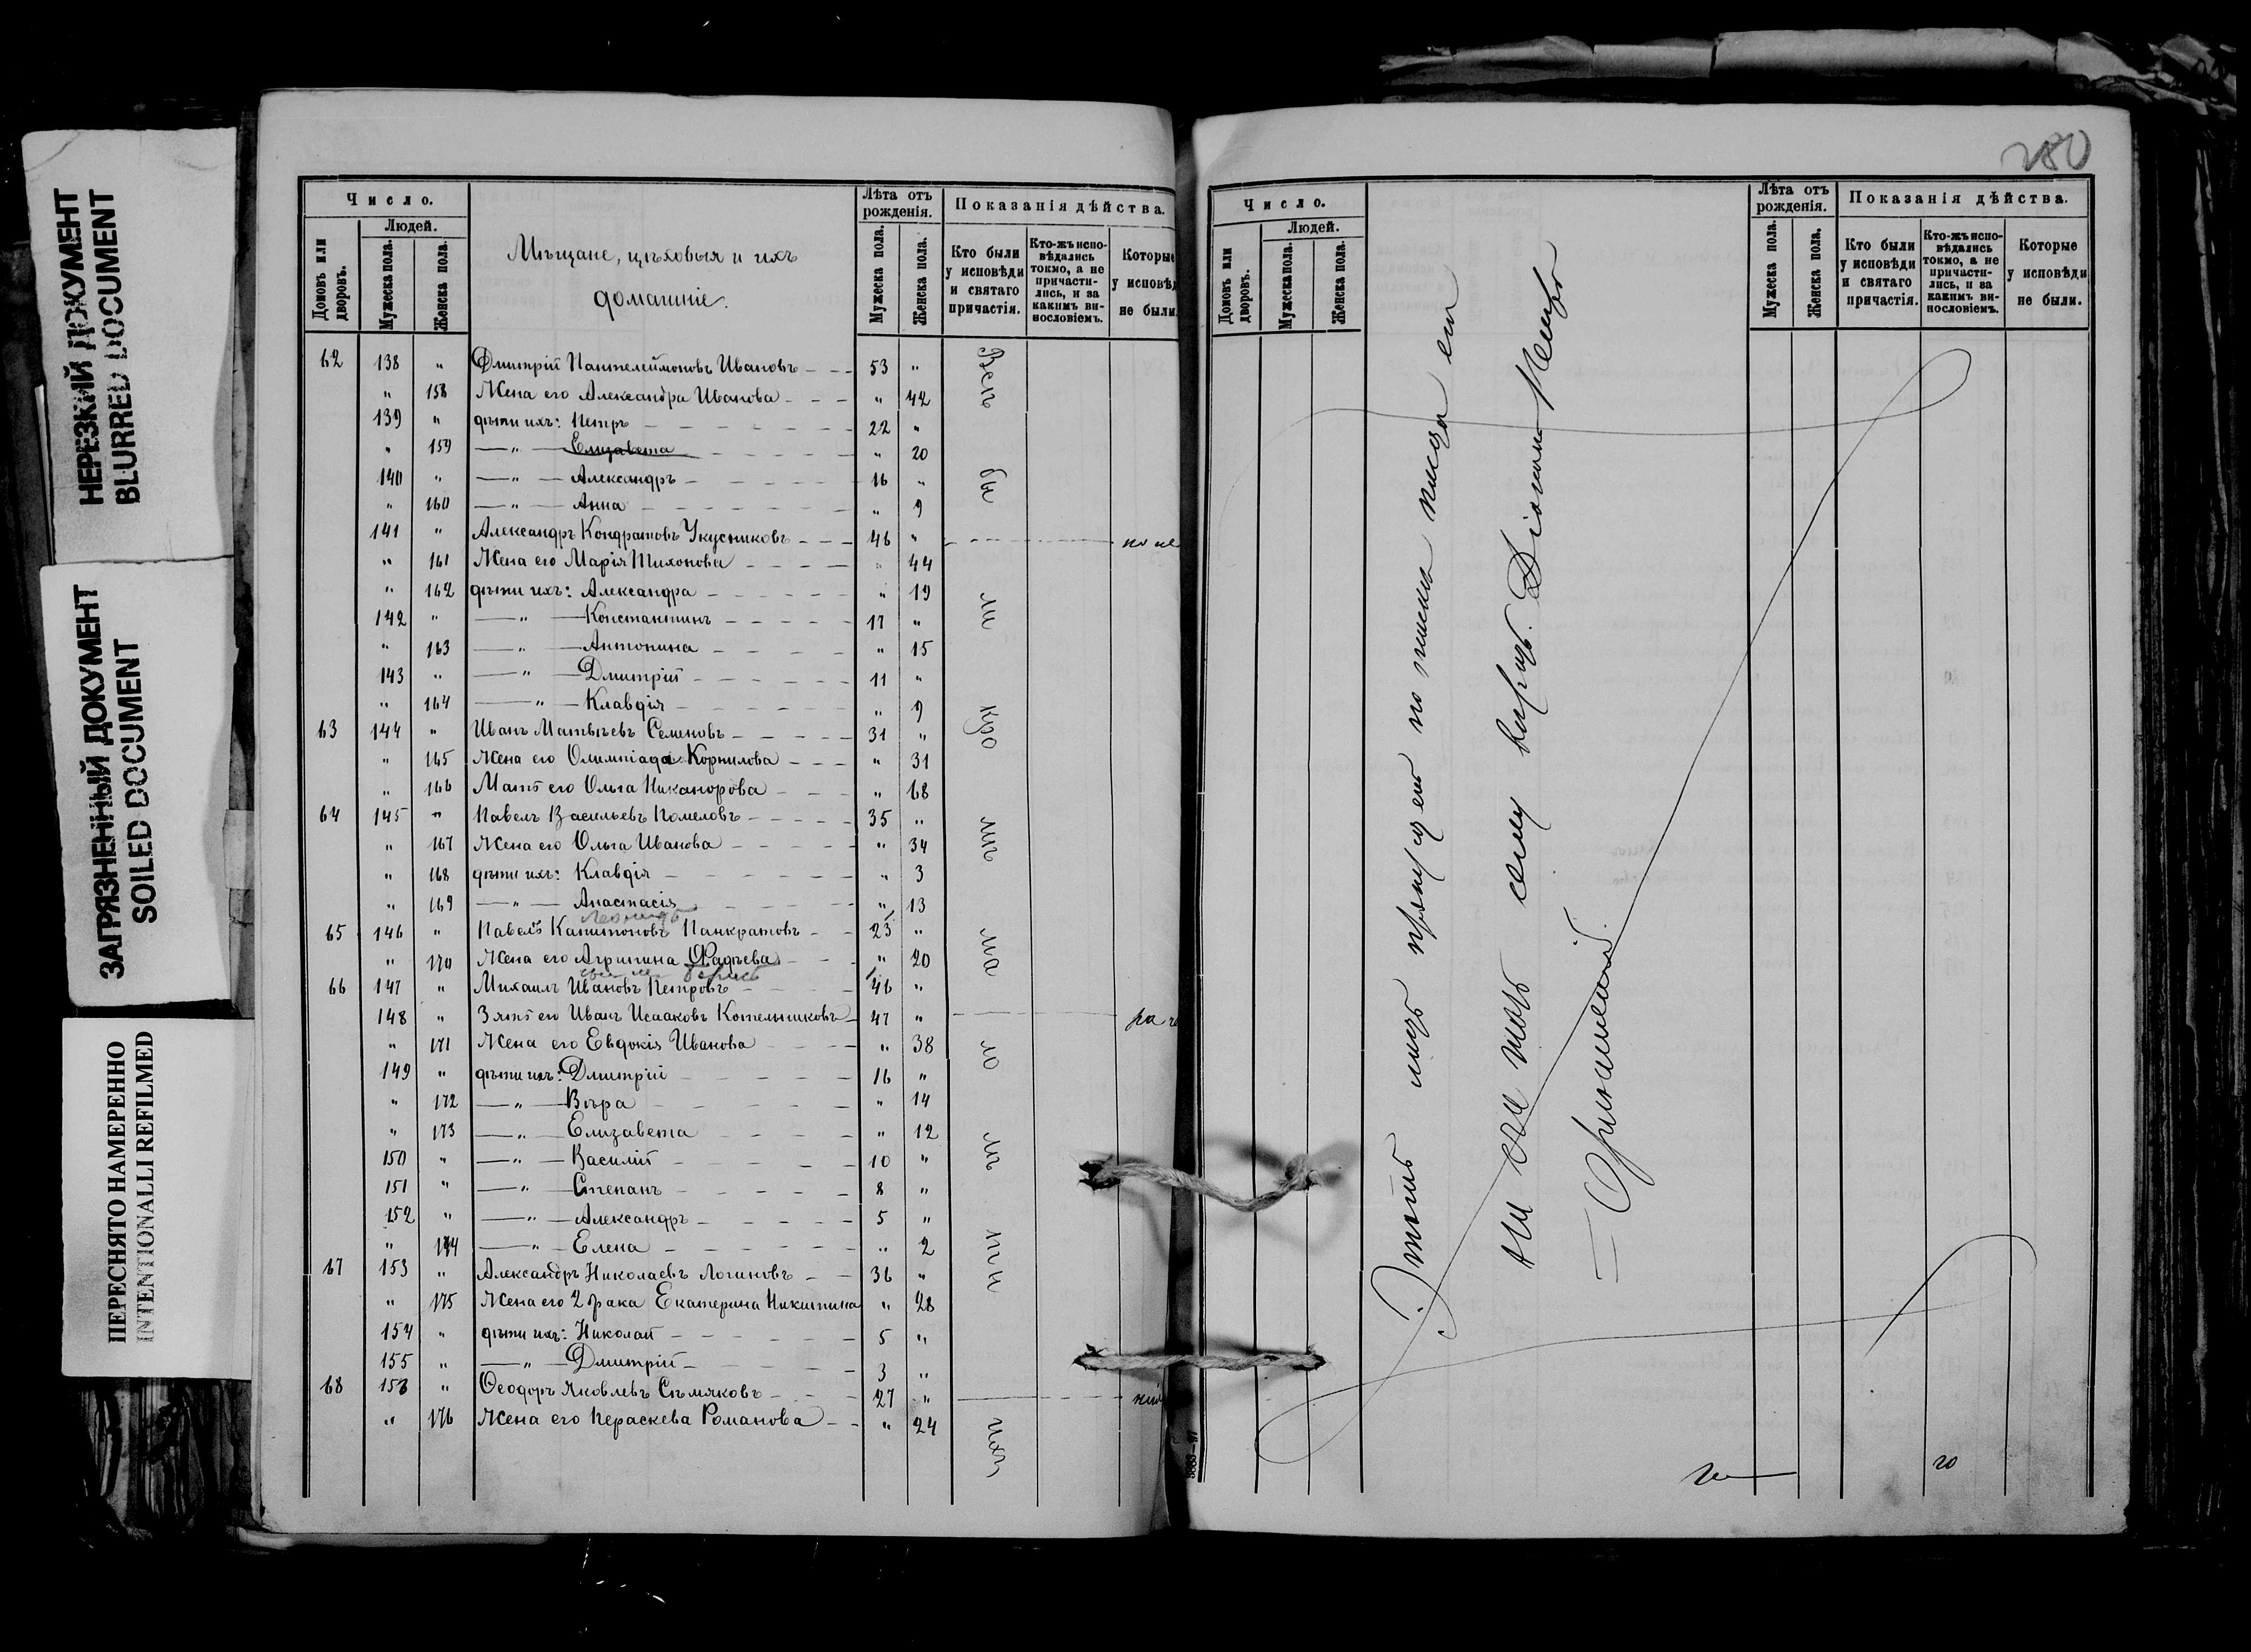 НЕРЕЗКИЙ ДОКУМЕНТ
BLURRED DOCUMENT
ЗАГРЯЗНЕННЫЙ ДОКУМЕНТ
SOILED DOCUMENT
ПЕРЕСНЯТО НАМЕРЕННО
INTENTIONALLI REFILMED
Число.
Людей.
Домовъ или дворовъ.
Мужеска пола.
Женска пола.
Мѣщане, цѣховыя и ихъ
домашніе.
Лѣта отъ рожденія.
Мужеска пола.
Женска пола.
Показанія дѣйства.
Кто были у исповѣди и святаго причастія.
Кто-жъ испо-вѣдались токмо, а не причасти-лись, и за какимъ ви-нословіемъ.
Которые у исповѣд не были.
62 138 " Дмитрій Пантелеймоновъ Ивановъ 53 "
" 158 Жена его Александра Иванова " 42
139 " дѣти ихъ: Петръ 22 "
" 159 " Елизавета " 20
140 " " Александръ 16 "
" 160 " Анна " 9
141 " Александръ Кондратовъ Укусниковъ 46 " по не
" 161 Жена его Марія Тихонова " 44
" 162 дѣти ихъ: Александра " 19
142 " " Константинъ 17 "
" 163 " Антонина " 15
143 " " Дмитрій 11 "
" 164 " Клавдія " 9
63 144 " Иванъ Матвѣевъ Семеновъ 31 "
" 165 Жена его Олимпіада Корнилова " 31
" 166 Мать его Ольга Никанорова " 68
64 145 " Павелъ Васильевъ Помеловъ 35 "
" 167 Жена его Ольга Иванова " 34
" 168 дѣти ихъ: Клавдія " 3
" 169 " Анастасія " 13
Леонидъ
65 146 " Павелъ Капитоновъ Панкратовъ 23 "
" 170 Жена его Агрипина Фадѣева " 20
Борисъ
66 147 " Михаилъ Ивановъ Петровъ 46 "
148 " Зять его Иванъ Исааковъ Котельниковъ 47 "
" 171 Жена его Евдокія Иванова " 38
149 " дѣти ихъ: Дмитрій 16 "
" 172 " Вѣра " 14
" 173 " Елизавета " 12
150 " " Василій 10 "
151 " " Степанъ 8 "
152 " " Александръ 5 "
" 174 " Елена " 2
67 153 " Александръ Николаевъ Логиновъ 36 "
" 175 Жена его 2 брака Екатерина Никитина " 28
154 " дѣти ихъ: Николай 5 "
155 " " Дмитрій 3 "
68 156 " Ѳеодоръ Яковлевъ Сѣмяковъ 27 "
" 176 Жена его Параскева Романова " 24
280
Число.
Людей.
Домовъ или дворовъ.
Мужеска пола.
Женска пола.
Лѣта отъ рожденія.
Мужеска пола.
Женска пола.
Показанія дѣйства.
Кто были у исповѣди и святаго причастія.
Кто-жъ испо-вѣдались токмо, а не причасти-лись, и за какимъ ви-нословіемъ.
Которые у исповѣди не были.
Этотъ листъ
сему вѣрн. Діаконъ
го